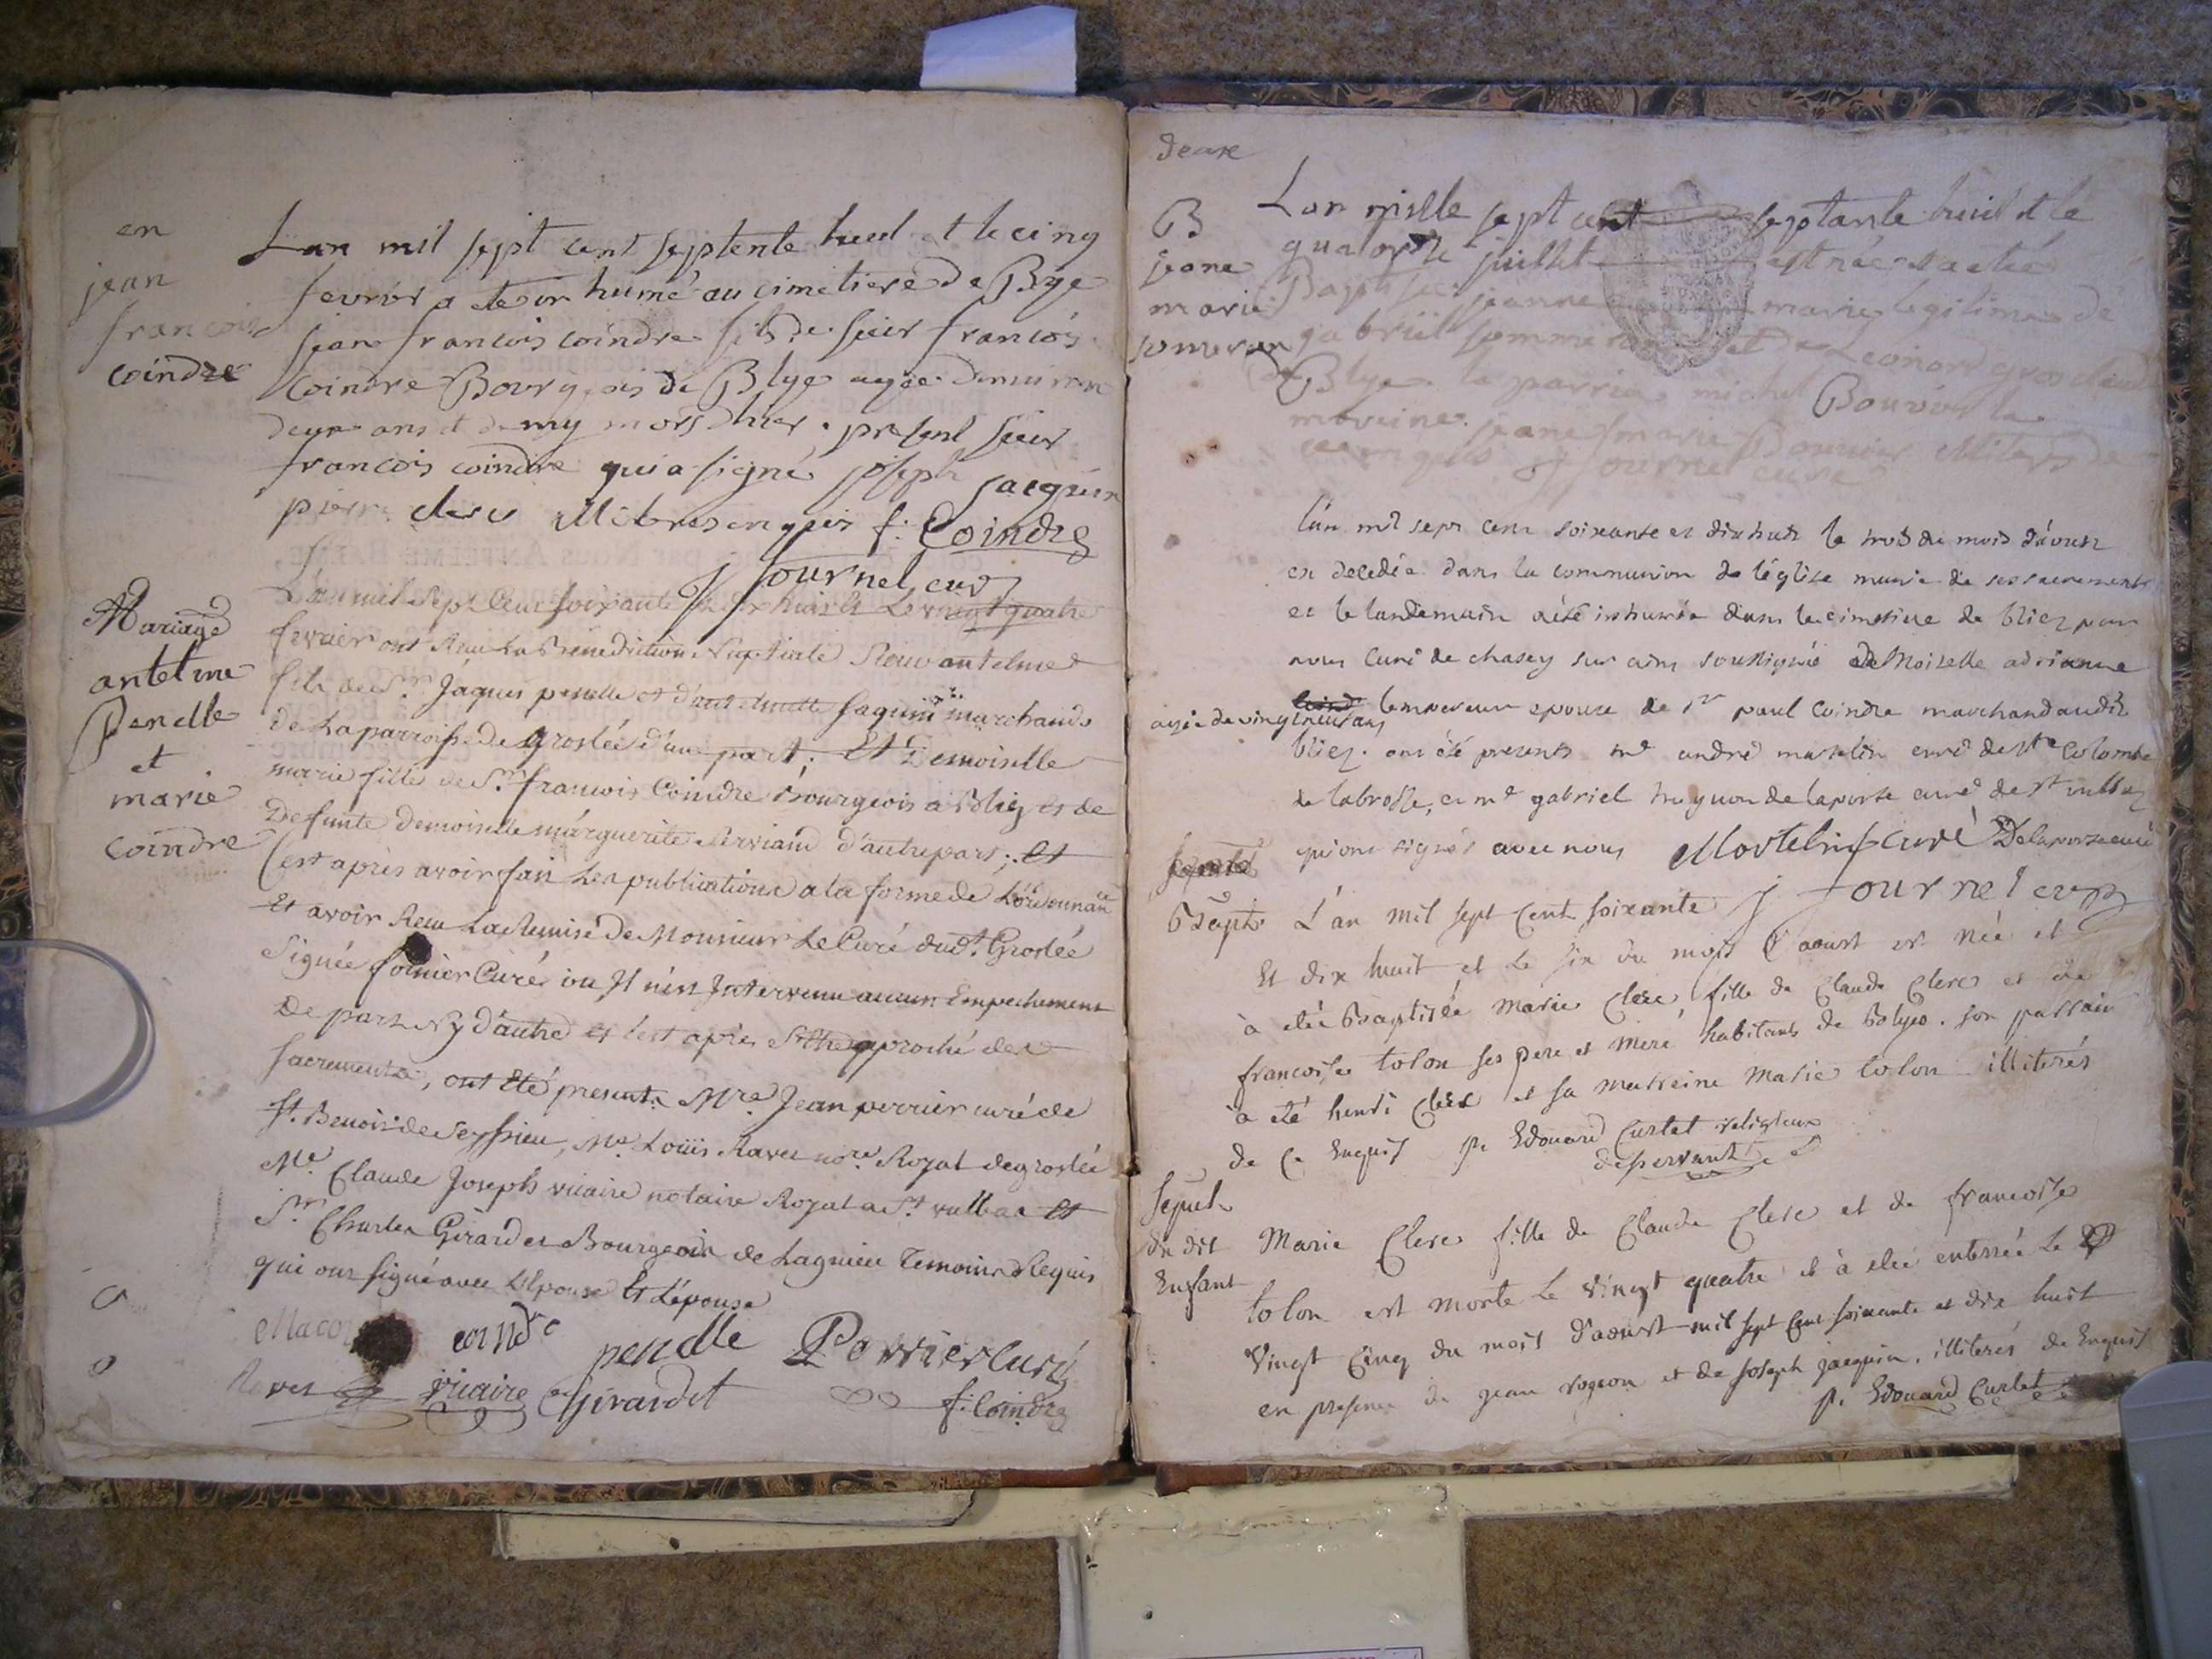 en
jean
francois
coindre
Lan mil sept cent septente huel et le cinq
fevrier a ete in humé au cimetiere de Blye
jean francois coindre fils de sieur francois
Cointre Bourgois de Blye agée
deux ans et demy mors hier. present sieur
francois coindre qui a signé joseph jacquin
pierre clerc illiteres enquis f. Coindre
J fournel curé
Mariage
antelme
Penelle
et
marie
coindre
L'an mil sept cent soixante dix huit et Le vingt quatre
fevrier ont Reçu La Benediction Nuptiale Sieur antelme
fils de Sr. Jaques penelle et d' jaquin marchands
de La parroisse de Groslée d'une part; Et Demoiselle
marie fille de Sr. francois Coindre Bourgeois a Bliez et de
Defunte demoiselle marguerite Serviand d'autre part; Et
C'est après avoir fait Les publications a la forme de L'ordonnance
Et avoir Reçu La Remise de Monsieur Le Curé dudt. Groslée
Signée Curé ou Il n'est Intervenu aucun Empechement
De part Ny d'autre et c'est après S'etre approché des
sacrements, ont Eté presents Mre. Jean perrier curé de
St. Benoit de Seyssieu, Me. Louis Ravet nore. Royal de groslée
Me. Claude Joseph vicaire notaire Royal a St. vulbas Et
Sr. Charles Girardet Bourgeois de Lagnieu Temoins Requis
qui ont signé avec L'Epoux Et L'épouse
coindre penelle Perrier curé
Ravet vicaire Girardet f. Coindre
deux
B
jeane
marie
someran
Lan mille sept cent septante huit et le
quatorze juillet est née et a eté
Baptisée jeanne marie legitime de
gabriel sommeran et de Leonard gros claude
De Blye la parrin michel Bouvier la
mareine jeane marie Bouvier illiteres de
ce enquis J fournel curé
l'an mil sept cent soixante et dix huit le trois du mois d'aoust
est decedée dans la communion de l'église munie de ses sacrements
et le landemain a été inhumée dans le cimetiere de bliez par
nous curé de chasey sur ains soussigné deMoiselle adrianne
lempereur epouse de Sr paul Coindre marchand audit
agée de vingt ans
bliez. ont été presents mre andré martelin curé de Ste Colombe
de labrosse, et mre gabriel de laporte curé de St vulbas
qui ont signés avec nous Martelin curé Delaporte curé
J fournel curé
Bapt.
L'an mil sept cent soixante
Et dix huit et Le six du mois d'aoust est née et
à eté Baptisée Marie Clerc, fille de Claude Clerc et de
francoise tolon ses pere et mere habitants de Blyes. son parrain
à eté henri Clerc et sa marreine Marie tolon illiterés
de ce Enquis p. Edouard Curtet religieux
deservant
Sepul.
du dit
Enfant
Marie Clerc fille de Claude Clerc et de francoise
tolon est morte Le vingt quatre et à eté enterrée Le
vingt cinq du mois d'aoust mil sept cent soixante et dix huit
en presence de jean rogeon et de joseph jacquin, illiterés de Enquis
p. Edouard Curtet